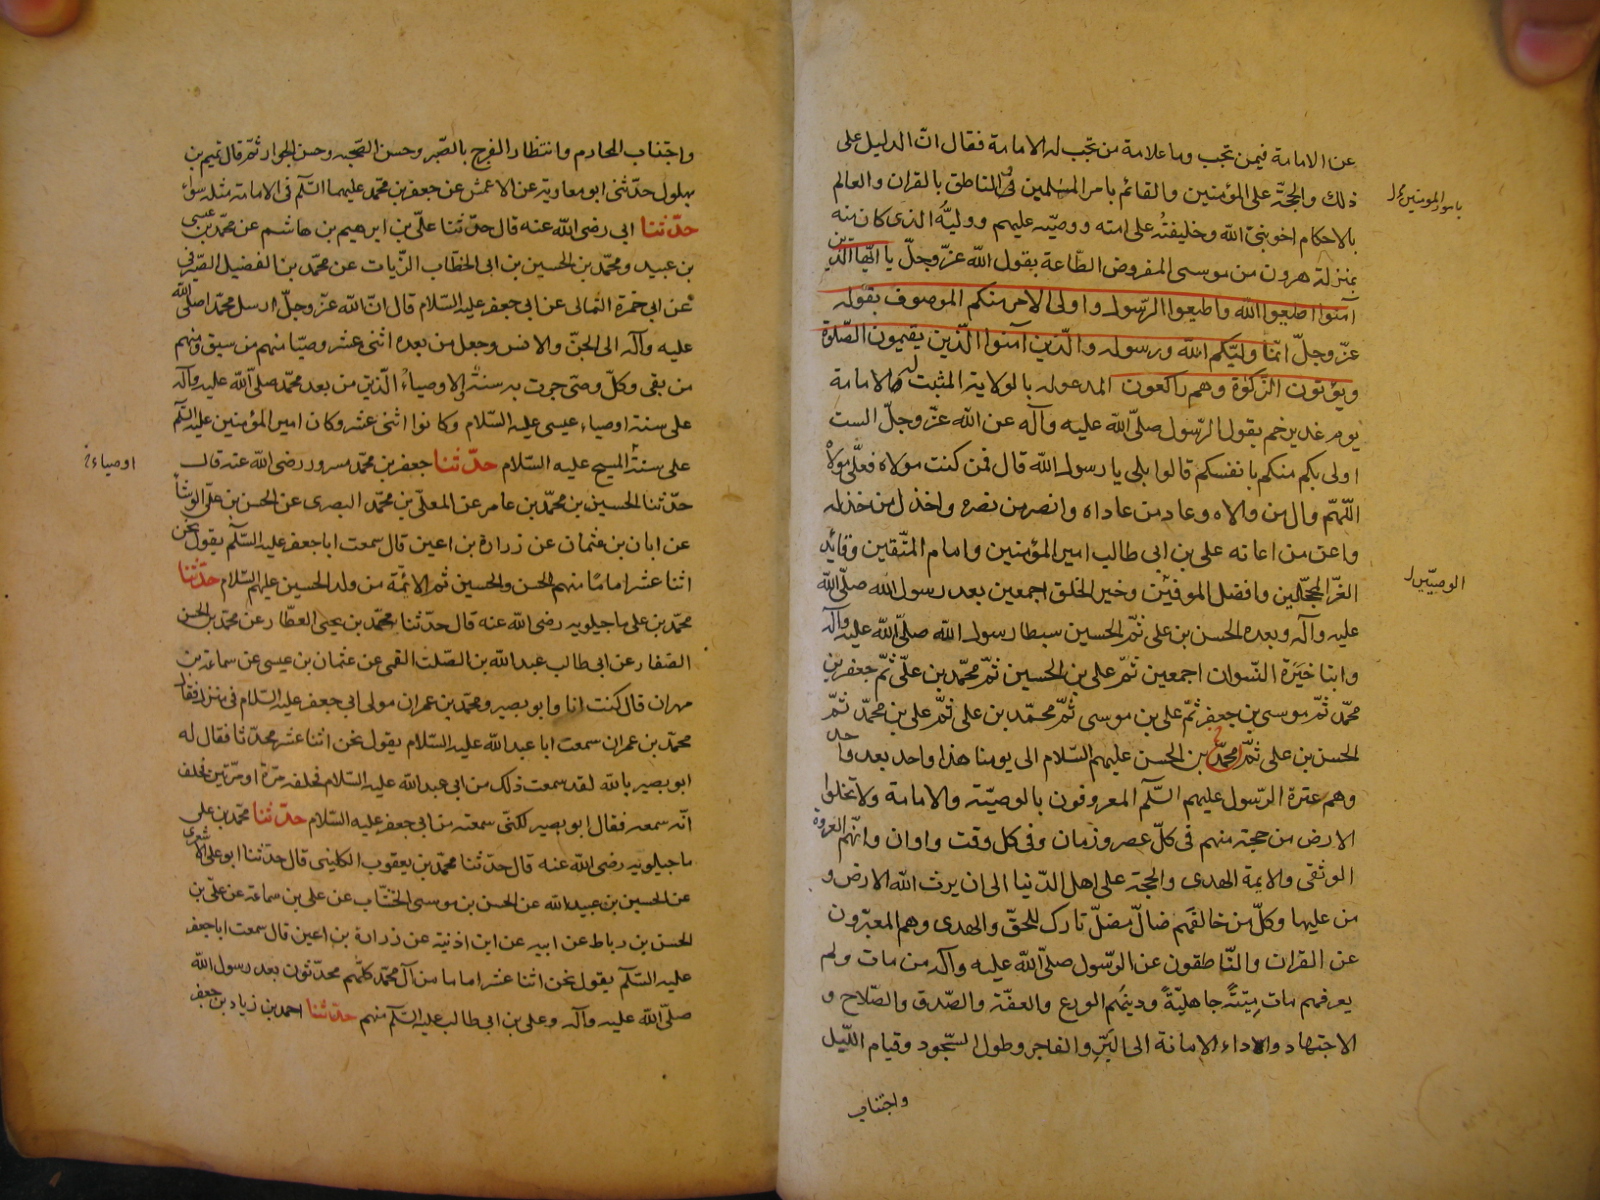 عن الامامة فيمن تجب وما علامة من تجب له الامامة فقال انّ الدليل على
ذلك والحجّة على المؤمنين والقائم بامر المسلمين والناطق بالقران والعالم
بالاحكام اخو نبىّ الله وخليفته على امته ووصيّه عليهم ووليّه الذى كان منه
بمنزلة هرون من موسى المفروض الطّاعة بقول الله عزّ وجلّ يا ايّها الّذين
آمنوا اطيعوا الله واطيعوا الرّسول واولى الامر منكم الموصوف بقوله
عزّ وجلّ انّما وليّكم الله ورسوله والّذين آمنوا الّذين يقيمون الصّلوة
ويؤتون الزّكوة وهم راكعون المدعو له بالولاية المثبت له الامامة
يوم غدير خم بقول الرّسول صلّى الله عليه وآله عن الله عزّ وجلّ الست
اولى بكم منكم بانفسكم قالوا بلى يا رسول الله قال فمن كنت مولاه فعلّى مولاه
اللّهمّ وال من والاه وعاد من عاداه وانصر من نصره واخذل من خذله
واعن من اعانه على بن ابى طالب امير المؤمنين وامام المتّقين وقائد
الغرّ المحجّلين وافضل الموقنين وخير الخلق اجمعين بعد رسول الله صلّى الله
عليه وآله وبعده الحسن بن على ثمّ الحسين سبطا رسول الله صلّى الله عليه وآله
وابنا خيرة النّسوان اجمعين ثمّ على بن الحسين ثمّ محمّد بن علّى ثمّ جعفر بن
محمّد ثمّ موسى بن جعفر ثمّ على بن موسى ثمّ محمّد بن على ثمّ على بن محمّد ثمّ
الحسن بن على ثمّ محمّد بن الحسن عليهم السّلام الى يومنا هذا واحد بعد واحد
وهم عترة الرّسول عليهم السّلم المعروفون بالوصيّة والامامة ولا تخلوا
الارض من حجة منهم فى كلّ عصر وزمان وفى كل وقت واوان وانّهم العروة
الوثقى والايمة الهدى والحجّة على اهل الدّنيا الى ان يرث الله الارض و
من عليها وكلّ من خالفهم ضالّ مضلّ تارك للحقّ والهدى وهم المعبّرون
عن القران والنّاطقون عن الرّسول صلّى الله عليه وآله من مات ولم
يعرفهم مات ميتةً جاهليّةً ودينهم الورع والعفّة والصّدق والصّلاح و
الاجتهاد واداء الامانة الى البَرّ والفاجر وطول السّجود وقيام اللّيل
واجتناب
الوصيّين ل
واجتناب المحارم وانتظار الفرج بالصّبر وحسن الصّحبه وحسن الجوار ثمّ قال تميم بن
بهلول حدّثنى ابو معاوية عن الاعمش عن جعفر بن محمّد عليهما السّلم فى الامامة مثله سواء
حدّثنا ابى رضى الله عنه قال حدّثنا علّى بن ابرهيم بن هاشم عن محمّد بن عيسى
بن عبيد ومحمّد بن الحسين بن ابى الخطّاب الزّيات عن محمّد بن الفضيل الصّيرفى
عن ابى حمزة الثمالى عن ابى جعفر عليه السّلام قال انّ الله عزّ وجلّ ارسل محمّدا صلّى الله
عليه وآله الى الجنّ والانس وجعل من بعده اثنى عشر وصيّا منهم من سبق ومنهم
من بقى وكلّ وصىّ جرت به سنّة الاوصياء الّذين من بعد محمّد صلّى الله عليه وآله
على سنة اوصياء عيسى عليه السّلام وكانوا اثنى عشر وكان امير المؤمنين عليه السّلم
على سنّة المسيح عليه السّلام حدّثنا جعفر بن محمّد مسرور رضى الله عنه قال
حدّثنا الحسين بن محمّد بن عامر عن المعلّى بن محمّد البصرى عن الحسن بن علّى الوشّا
عن ابان بن عثمان عن زرارة بن اعين قال سمعت ابا جعفر عليه السّلم يقول نحن
اثنا عشر امامًا منهم الحسن والحسين ثم الائمّة من ولد الحسين عليهم السّلام حدّثنا
محمّد بن على ماجيلويه رضى الله عنه قال حدّثنا محمّد بن يحيى العطّار عن محمّد بن الحسن
الصّفار عن ابى طالب عبد الله بن الصّلت القمى عن عثمان بن عيسى عن سماعة بن
مهران قال كنت انا وابو بصير ومحمّد بن عمران مولى ابى جعفر عليه السّلام فى منزله فقال
محمّد بن عمران سمعت ابا عبد الله عليه السّلام يقول نحن اثنا عشر محدّثا فقال له
ابو بصير بالله لقد سمعت ذلك من ابى عبد الله عليه السّلام فحلفه مرّة او مرّتين فحلف
انّه سمعه فقال ابو بصير لكنّى سمعته من ابى جعفر عليه السّلام حدّثنا محمّد بن على
ماجيلويه رضى الله عنه قال حدّثنا محمّد بن يعقوب الكلينى قال حدّثنا ابو على الاشعرى
عن الحسين بن عبيد الله عن الحسن بن موسى الخشّاب عن على بن سماعة عن علّى بن
الحسن بن رباط عن ابيه عن ابن اذنية عن زرارة بن اعين قال سمعت ابا جعفر
عليه السّلم يقول نحن اثنا عشر اماما من آل محمّد كلّهم محدّثون بعد رسول الله
صلّى الله عليه وآله وعلى بن ابى طالب عليه السّلم منهم حدّثنا احمد بن زياد بن جعفر
اوصياء